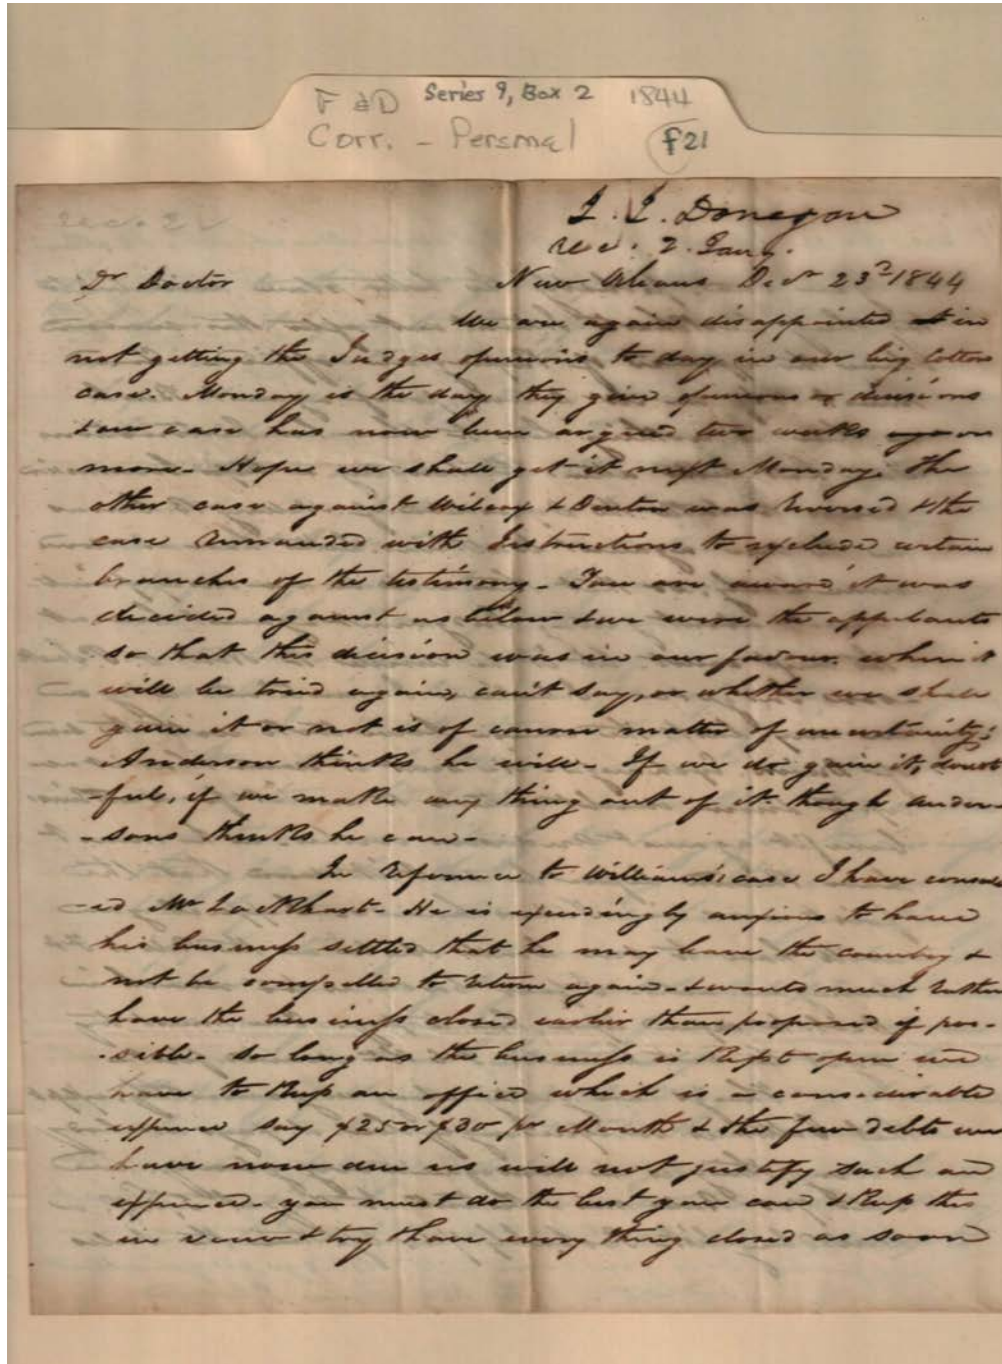 F &D Series 9, Box 2 1844
Corr. - Personal f21
J. J. Donegan
rec. 2. Jany.
Dr Doctor New Orleans Decr 23d 1844
We are again disappointed in
not getting the Judges opinions to day in our big Cotton
case. Monday is the day they give opinions or decisions
& our case has now been argued two weeks or
more - Hope we shall get it next Monday. The
other case against Wilcox & Denton was reversed & the
case remanded with Instructions to exclude certain
branches of the testimony - You are aware it was
decided against us below & we were the appellants
so that this decision was in our favour. when it
will be tried again, can't say, or whether we shall
gain it or not is of course matter of uncertainty;
Anderson thinks he will - If we do gain it, doubt
-ful, if we make any thing out of it though Ander-
-sons thinks he can -
In reference to Williams' case I have consult
-ed Mr Lockhart - He is exceedingly anxious to have
his business settled that he may leave the country &
not be compelled to return again - & wants much rather
have the business closed earlier than proposed if pos-
-sible - So long as the business is Kept open we
have to Keep an office which is a considerable
expence say $25 or $30 pr Month & the few debts we
have now due us will not justify such an
expence - you must do the best you can & Keep this
in view & try & have every thing closed as soon